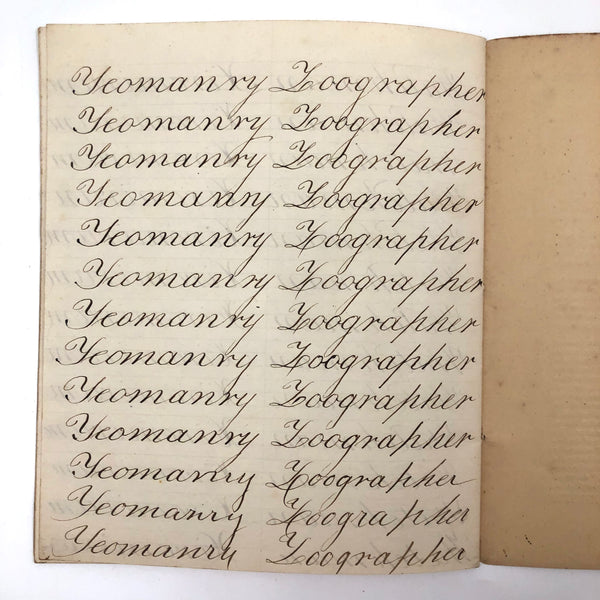 Yeomanry Zoographer
Yeomanry Zoographer
Yeomanry Zoographer
Yeomanry Zoographer
Yeomanry Zoographer
Yeomanry Zoographer
Yeomanry Zoographer
Yeomanry Zoographer
Yeomanry Zoographer
Yeomanry Zoographer
Yeomanry Zoographer
Yeomanry Zoographer
Yeomanry Zoographer